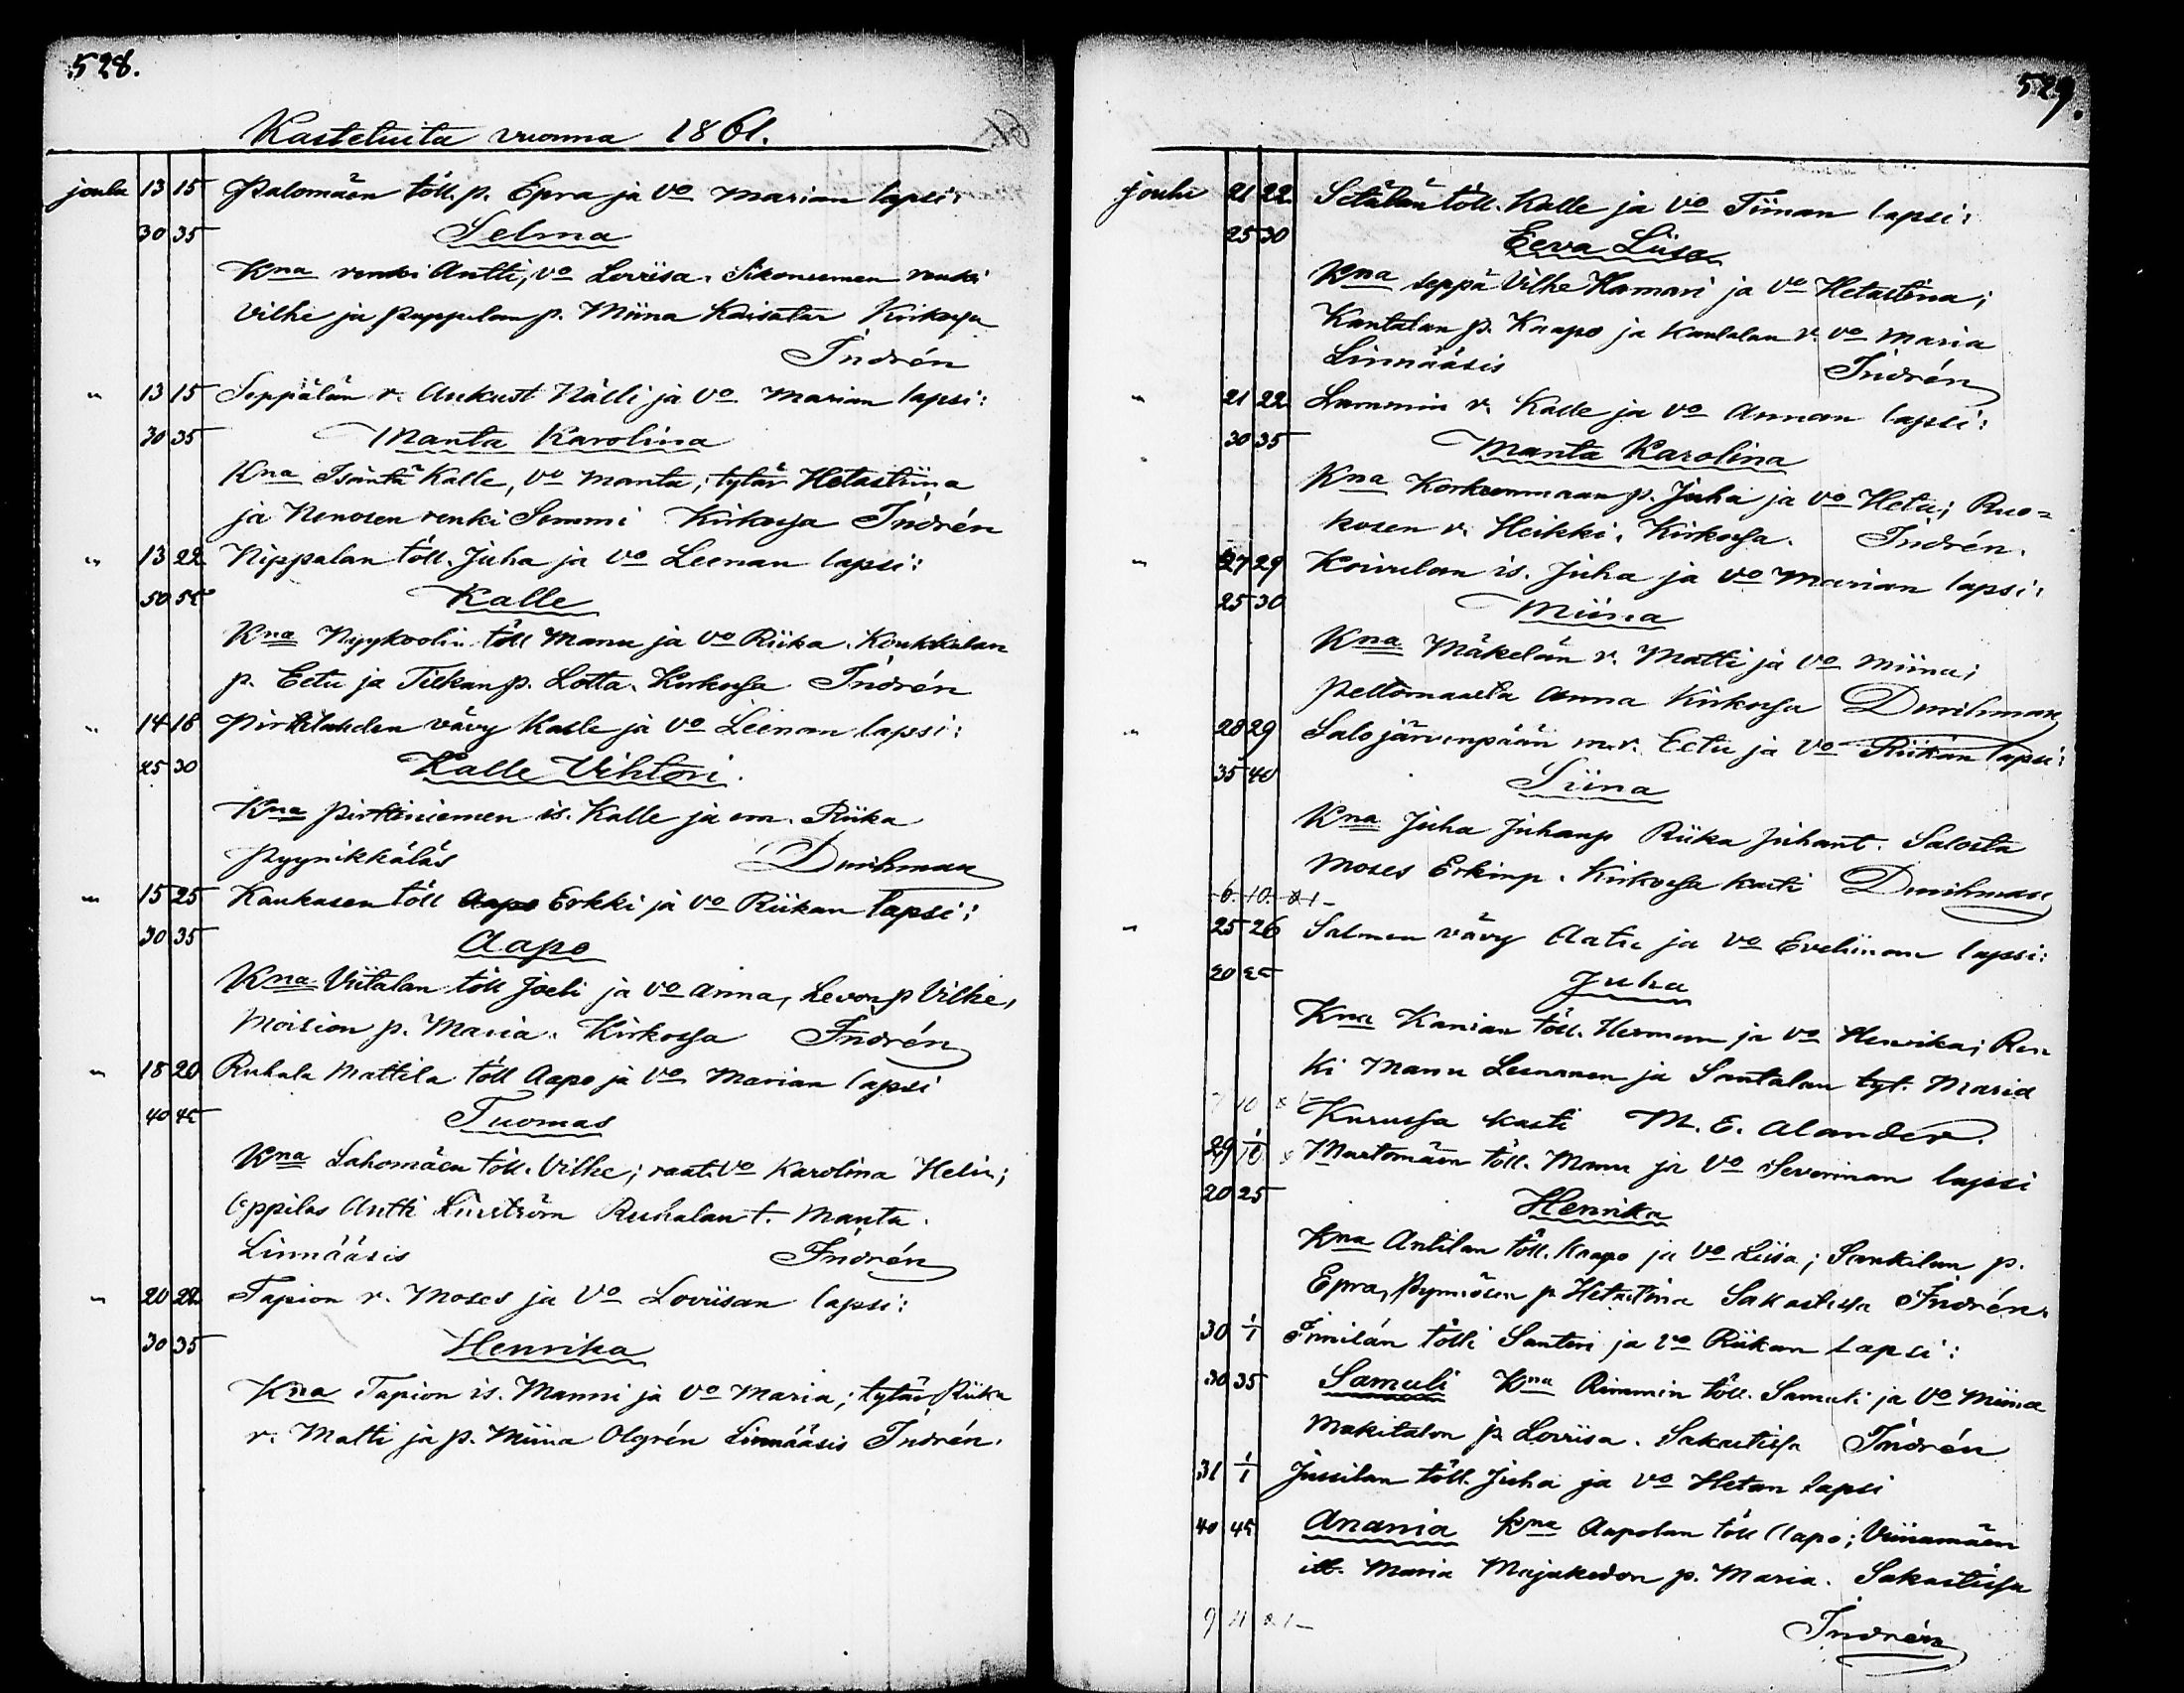 528.
Kastetuita vuonna 1861.
joulu 13 15 Palomäen töll. p. Epra ja vo Marian lapsi:
30 35 Selma
Kna renki Antti, vo Loviisa. Sikoniemen renki
Vilhe ja Puppulan p. Miina Kaisatar Kirkossa
Indrén
" 13 15 Seppälän r. Aukust Nälli ja vo Marian lapsi:
30 35 Manta Karolina
Kna Isäntä Kalle, vo Manta, tytär Hetastiina
ja Nenosen renki Sommi Kirkossa Indrén
" 13 22 Nippalan töll. Juha ja vo Leenan lapsi:
50 55 Kalle
Kna Nyykoolin töll Manu ja vo Riika. Koukkulan
p. Eetu ja Tiekan p. Lotta. Kirkossa Indrén
" 14 18 Pirttilahden vävy Kalle ja vo Leenan lapsi:
25 30 Kalle Vihtori.
Kna Pirttiniemen is. Kalle ja em. Riika
Pyynikkäläs Durchman
" 15 25 Kaukasen töll Aapo Erkki ja vo Riikan lapsi:
30 35 Aapo
Kna Viitalan töll Joeli ja vo Anna, Levon p Vilhe,
Moision p. Maria. Kirkossa Indrén
" 18 20 Ruhala Mattila töll Aapo ja vo Marian lapsi
40 45 Tuomas
Kna Lahomäen töll. Vilhe; raat. vo Karolina Helin;
Oppilas Antti Ruhalan t. Manta.
Linnääsis Indrén
" 20 22 Tapion r. Moses ja vo Loviisan lapsi:
30 35 Henrika
Kna Tapion is. Manni ja vo Maria; tytär Riika
r. Matti ja p. Miina Olgrén Linnääsis Indrén.
529.
joulu 21 22 Setälän töll. Kalle ja vo Tiinan lapsi:
25 30 Eeva Liisa
Kna seppä Vilhe Hamari ja vo Hetastina;
Kantalan p. Kaapo ja Kantalan r. vo Maria
Linnääsis Indrén
" 21 22 Lammin r. Kalle ja vo Annan lapsi:
30 35 Manta Karolina
Kna Korkeenmaan p. Juha ja vo Heta; Ruo=
kosen r. Heikki. Kirkossa. Indrén.
" 27 29 Koivulan is. Juha ja vo Marian lapsi:
25 30 Miina
Kna Mäkelän r. Matti ja vo Miina;
Peltomaasta Anna Kirkossa Durchman
" 28 29 Salojärvenpään m.r. Eetu ja vo Riikan lapsi:
35 40 Siina
Kna Juha Juhanp Riika Juhant. Salosta
Moses Erkinp. Kirkossa kasti Durchman
6. 10.
" 25 26 Salmen vävy Aatu ja vo Eveliinan lapsi:
20 25 Juha
Kna Kanian töll. Herman ja vo Henrika; Ren
ki Manu Leenanen ja Santalan tyt. Maria
Kurussa kasti M. E. Alander.
29 Martomäen töll. Manu ja vo Severinan lapsi
20 25 Henrika
Kna Antilan töll. Kaapo ja vo Liisa; Sankilan p.
Epra, p Hetastina Sakastissa Indrén.
30 1/1 Innilän tölli Santeri ja vo Riikan Lapsi:
30 35 Samuli Kna Rimmin töll. Samuli ja vo Miina
Mäkitalon p. Loviisa. Sakastissa Indrén
31 1/1 Jussilan töll. Juha ja vo Hetan lapsi
40 45 Anania Kna Aapolan töll Aapo; Viinamäen
itt. Maria Majakedon p. Maria. Sakastissa
9 11
Indrén